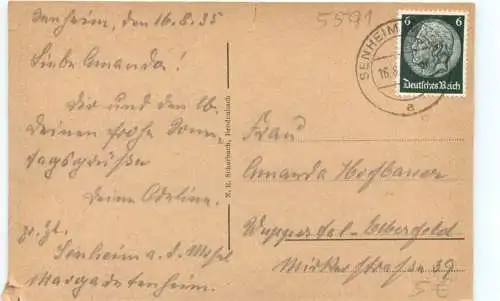 Senheim, den 16.8.35
Liebe Amanda!
Dir und den lb.
Deinen frohe Sonn-
tagsgrüße
Deine Adeline.
z. Zt.
Senheim a. d. Mosel
Margaretenheim.
5591
SENHEIM
16.8.
a
6 6
Deutsches Reich
Frau
Amanda Hofbauer
Wuppertal-Elberfeld
Mirkerstrasse 39
5 €